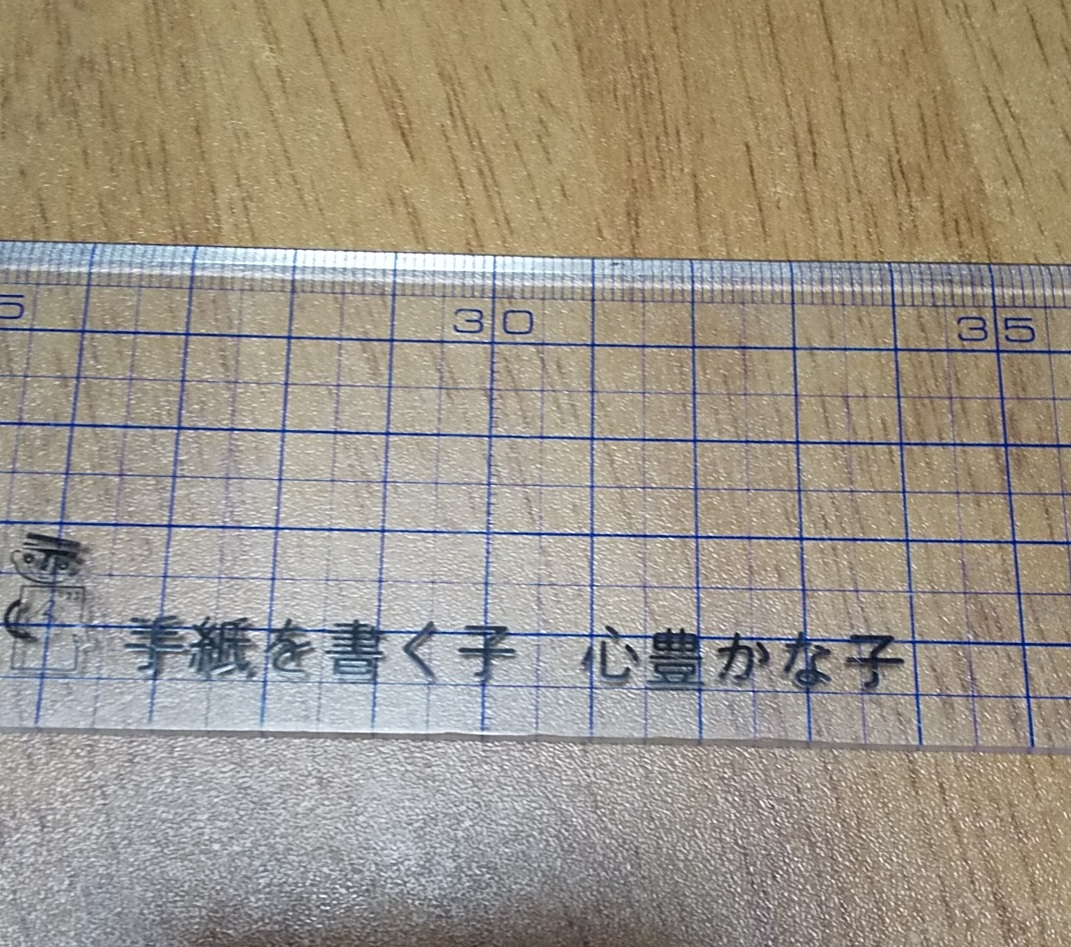 5 30 35
手紙を書く子 心豊かな子